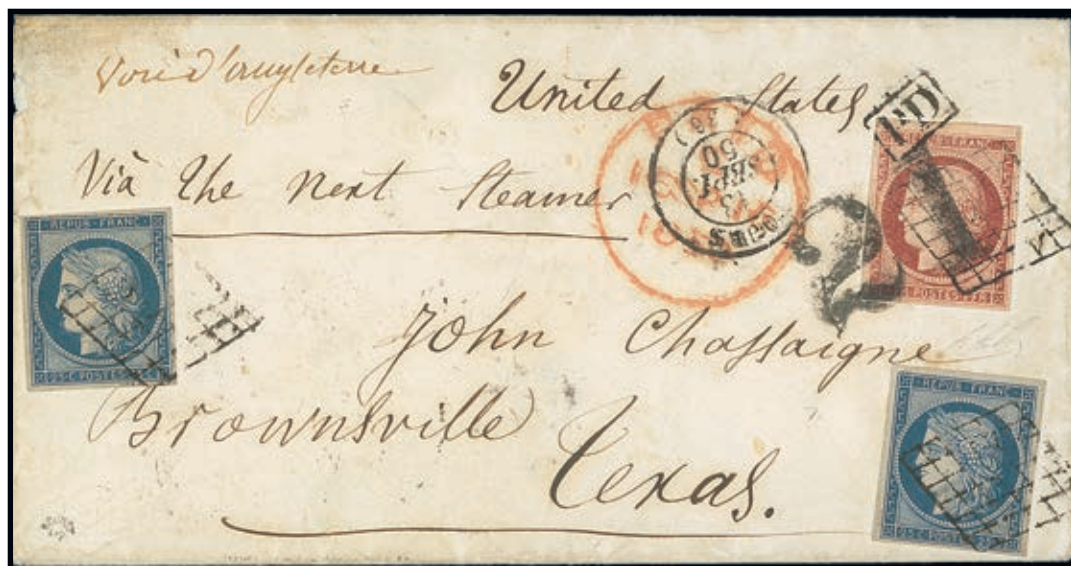 Voie d'angleterre
United States
Via the next Steamer
PD
TOURS
13
SEPT.
50
(36)
21
REPUB FRANC
POSTES 1 FR
REPUB FRANC
25 C POSTES 25 C
John Chassaigne
Brownsville
Texas.
REPUB FRANC
25 C POSTES 25 C